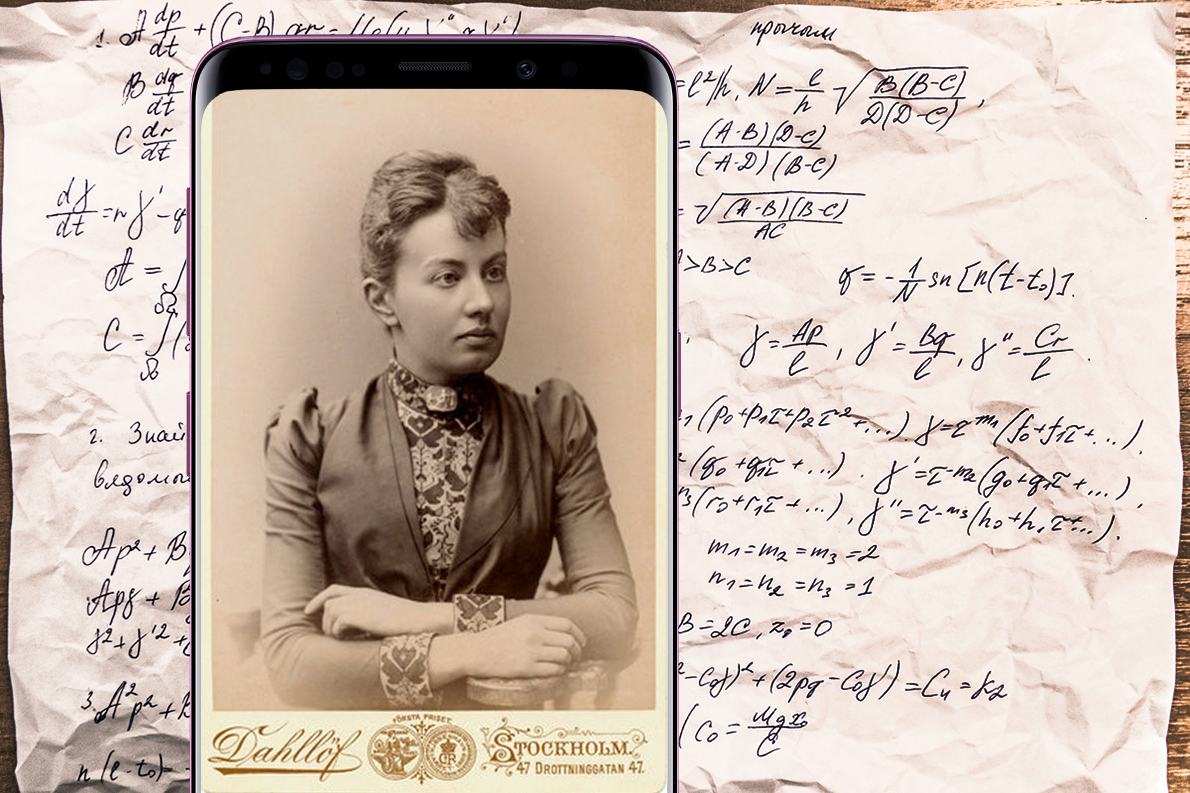 1. A dp/dt + (C-B) qr =
B dq/dt
C dr/dt
dγ/dt = r γ' - q
A = ∫
C = ∫ (
2. Знай
вядомы
Ap² + B
Apγ + B
γ² + γ'² +
3. A²p² +
n (t-t₀) =
прычым
= l²/h, N = l/h √(B(B-C)/D(D-C)),
= (A-B)(D-C)/(A-D)(B-C)
= √((A-B)(B-C)/AC)
>B>C
q = -1/N sn [n(t-t₀)].
γ = Ap/l, γ' = Bq/l, γ" = Cr/l.
(p₀+p₁τ+p₂τ²+...) γ=τ⁻ᵐ¹(f₀+f₁τ+...).
(q₀+q₁τ+...). γ'=τ⁻ᵐ²(g₀+g₁τ+...),
(r₀+r₁τ+...), γ"=τ⁻ᵐ³(h₀+h₁τ+...).
m₁=m₂=m₃=2
n₁=n₂=n₃=1
B=2C, z₀=0
²-C₀γ)²+(2pq-C₀γ')=C₄=k₂
(C₀ = Mgx₀/C
FÖRSTA PRISET.
Dahllöf
STOCKHOLM.
47 DROTTNINGGATAN 47.